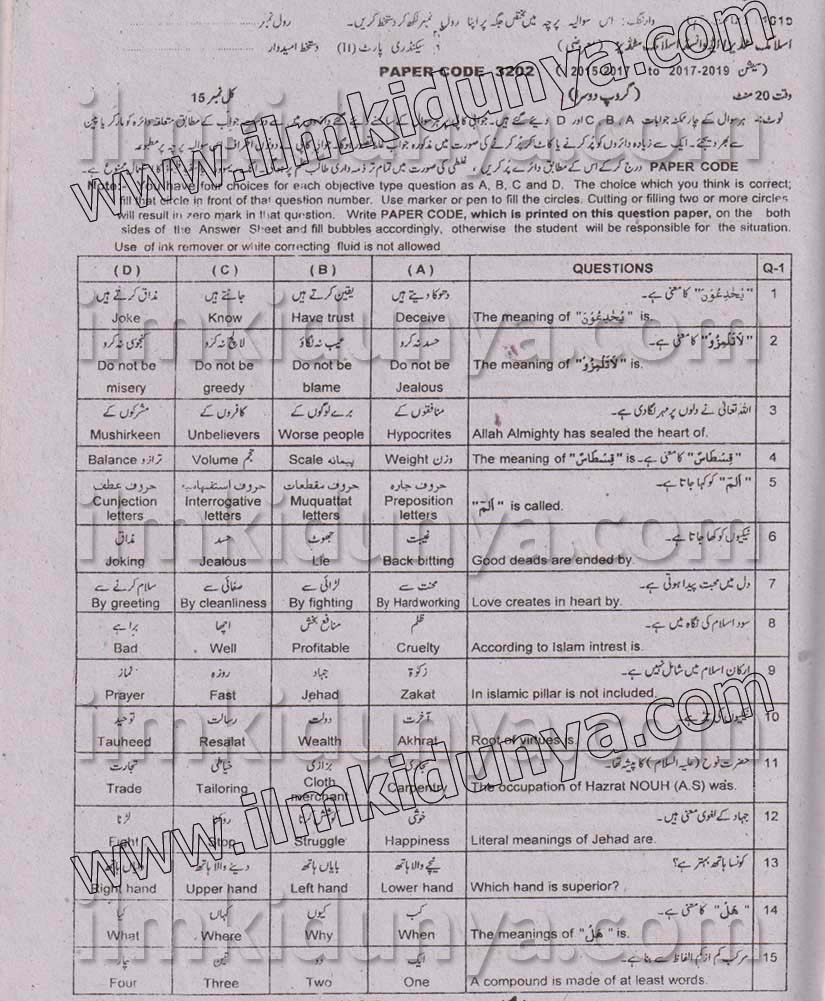 1019 وارننگ: اس سوالیہ پرچہ میں مختص جگہ پر اپنا رول نمبر لکھ کر دستخط کریں۔ رول نمبر
سیکنڈری پارٹ (II) دستخط امیدوار
PAPER CODE 3202 (سیشن 2015-2017 to 2017-2019)
وقت 20 منٹ (گروپ دوسرا) کل نمبر 15
نوٹ:- ہر سوال کے چار ممکنہ جوابات A، B، C اور D دیے گئے ہیں۔
PAPER CODE درج کر کے اس کے مطابق دائرے پُر کریں، غلطی کی صورت میں تمام تر ذمہ داری طالب
Note:- You have four choices for each objective type question as A, B, C and D. The choice which you think is correct;
fill that circle in front of that question number. Use marker or pen to fill the circles. Cutting or filling two or more circles
will result in zero mark in that question. Write PAPER CODE, which is printed on this question paper, on the both
sides of the Answer Sheet and fill bubbles accordingly, otherwise the student will be responsible for the situation.
Use of ink remover or white correcting fluid is not allowed
(D) (C) (B) (A) QUESTIONS Q-1
مذاق کرتے ہیں جانتے ہیں یقین کرتے ہیں دھوکا دیتے ہیں "یُخٰدِعُوْنَ" کا معنی ہے۔ 1
Joke Know Have trust Deceive The meaning of "یُخٰدِعُوْنَ" is.
کنجوسی نہ کرو لالچ نہ کرو عیب نہ لگاؤ حسد نہ کرو "لَاتَلْمِزُوْ" کا معنی ہے۔ 2
Do not be Do not be Do not be Do not be The meaning of "لَاتَلْمِزُوْ" is.
misery greedy blame Jealous
مشرکوں کے کافروں کے برے لوگوں کے منافقوں کے اللہ تعالیٰ نے دلوں پر مہر لگا دی ہے۔ 3
Mushirkeen Unbelievers Worse people Hypocrites Allah Almighty has sealed the heart of.
Balance ترازو Volume حجم Scale پیمانہ Weight وزن The meaning of "قِسْطَاسْ" is "قِسْطَاسْ" کا معنی ہے۔ 4
حروف عطف حروف استفہامیہ حروف مقطعات حروف جارہ "اَلٓمّ" کو کہا جاتا ہے۔ 5
Cunjection Interrogative Muquattat Preposition "اَلٓمّ" is called.
letters letters letters letters
مذاق حسد جھوٹ غیبت نیکیوں کو کھا جاتا ہے۔ 6
Joking Jealous Lie Back bitting Good deads are ended by.
سلام کرنے سے صفائی سے لڑائی سے محنت سے دل میں محبت پیدا ہوتی ہے۔ 7
By greeting By cleanliness By fighting By Hardworking Love creates in heart by.
برا ہے اچھا منافع بخش ظلم سود اسلام کی نگاہ میں ہے۔ 8
Bad Well Profitable Cruelty According to Islam intrest is.
نماز روزہ جہاد زکوٰۃ ارکان اسلام میں شامل نہیں ہے۔ 9
Prayer Fast Jehad Zakat In islamic pillar is not included.
توحید رسالت دولت آخرت 10
Tauheed Resalat Wealth Akhrat Root of virtues is.
تجارت خیاطی بزازی حضرت نوح (علیہ السلام) کا پیشہ تھا۔ 11
Trade Tailoring Cloth merchant Carpentry The occupation of Hazrat NOUH (A.S) was.
لڑنا خوشی جہاد کے لغوی معنی ہیں۔ 12
Fight Stop Struggle Happiness Literal meanings of Jehad are.
دایاں ہاتھ دینے والا ہاتھ بایاں ہاتھ نیچے والا ہاتھ کونسا ہاتھ بہتر ہے؟ 13
Right hand Upper hand Left hand Lower hand Which hand is superior?
کیا کہاں کیوں کب "هَلْ" کا معنی ہے۔ 14
What Where Why When The meanings of "هَلْ" is.
چار تین دو ایک مرکب کم از کم الفاظ سے بنتا ہے۔ 15
Four Three Two One A compound is made of at least words.
www.ilmkidunya.com
www.ilmkidunya.com
ilmkidunya.com
ilmkidunya.com
ilmkidunya.com
ilmkidunya.com
ilmkidunya.com